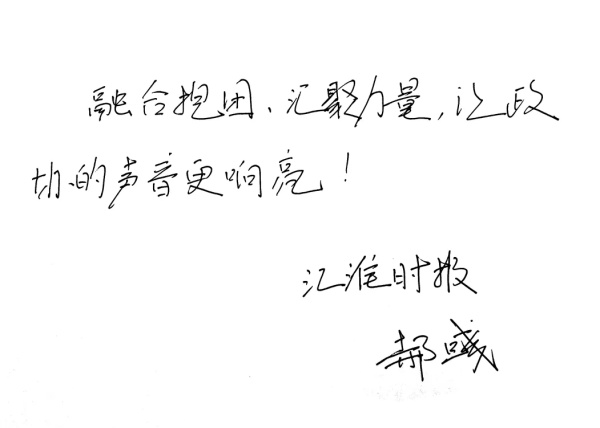 融合抱团、汇聚力量,让政
协的声音更响亮!
江淮时报
郝